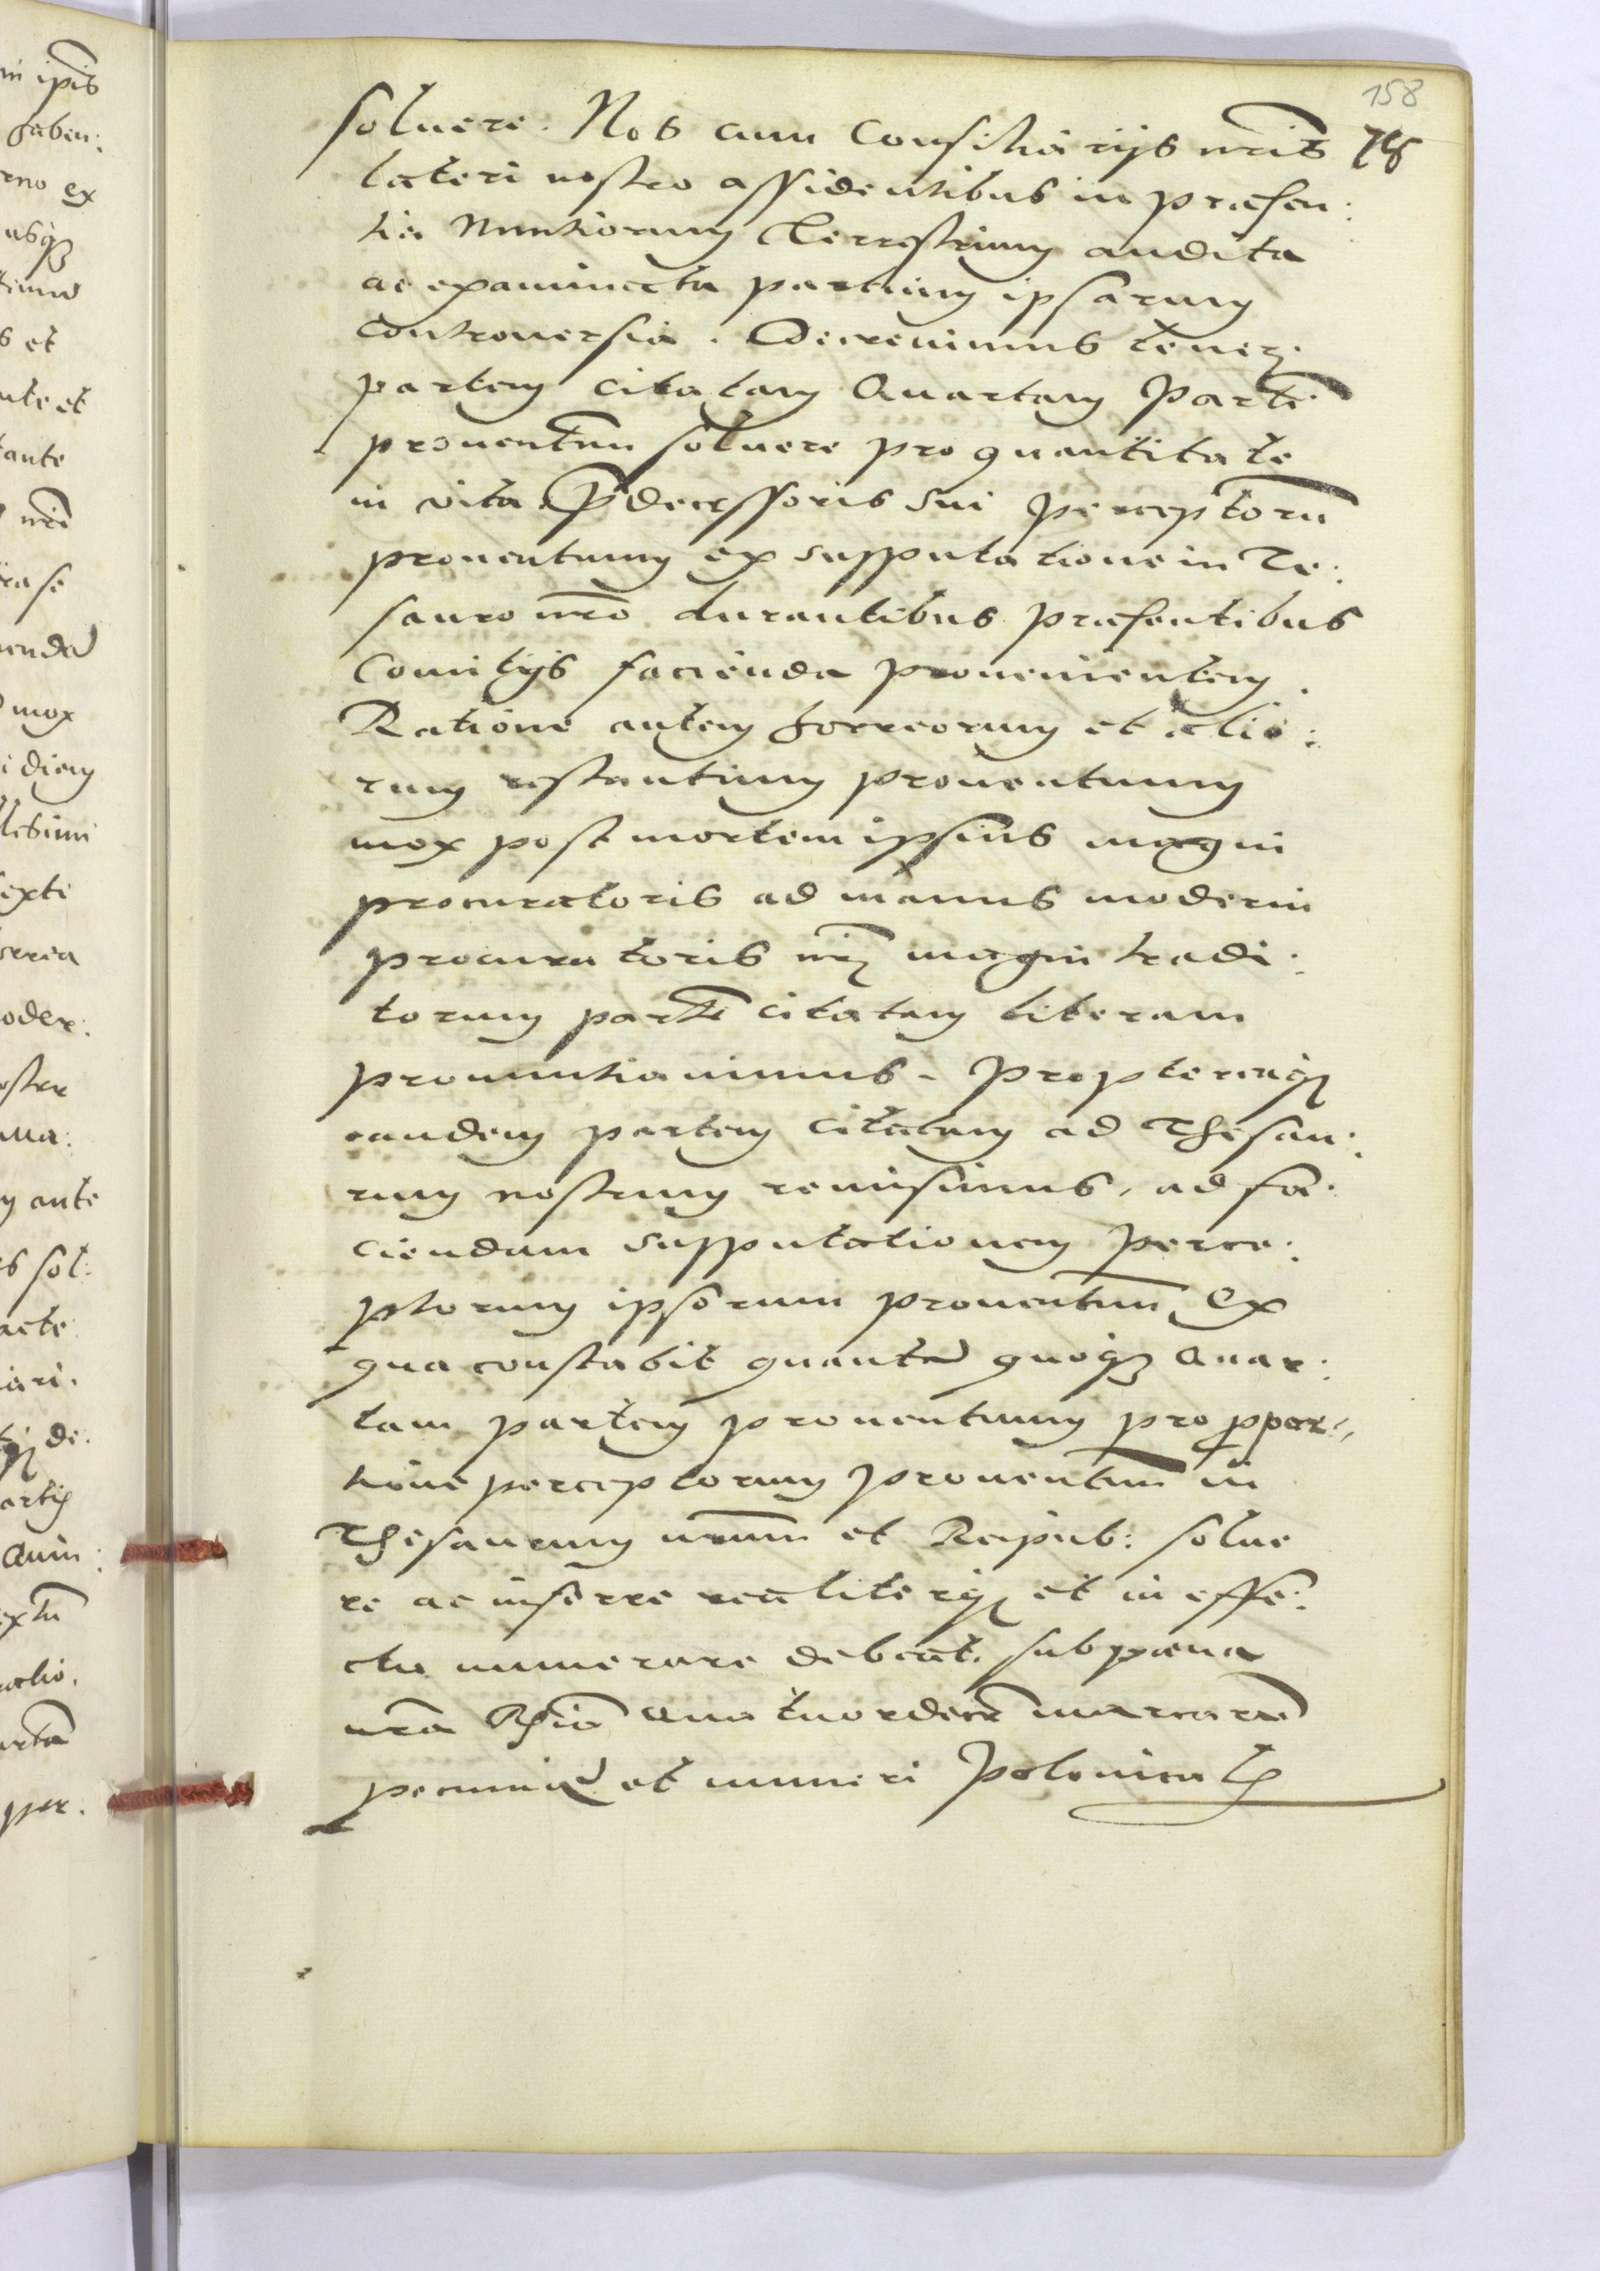 158
78
soluere. Nos cum Consiliarijs nris̃
lateri nostro assidentibus in præsen:
tia Nuntiorum Terrestrium audita
ac examinata partium ipsarum
controuersia. Decreuimus teneri
partem citatam Quartam Parte͂
prouentuu͂ soluere pro quantitate
in vita p͂decessoris sui perceptoru͂
prouentuum ex supputatione in Te:
sauro nr͂o durantibus præsentibus
Comitijs facienda prouenientem.
Ratione autem horreorum et alio:
rum restantium prouentuum
mox post mortem ipsius magni
procuratoris ad manus moderni
procuratoris nr͂i magni tradi:
torum parte͂ citatam liberam
pronuntiauimus. Proptereaq₃
eandem partem citatam ad Thesau:
rum nostrum remisimus, ad fa:
ciendam supputationem perce:
ptorum ipsorum prouentuu͂, Ex
qua constabit quanta͂ quoq₃ Quar:
tam partem prouentuum pro ppor:
tione perceptorum prouentuu͂ in
Thesaurum nr͂um et Reipub: solue
re ac inferre realiterq₃ et in effe:
ctu numerare debeat. sub pæna
nr͂a Rgia͂ Quatuordeci͂ marcaru͂
pecuniæ et numeri Polonica͂
in ip͂is
haben:
rno ex
usq₃
s et
nte et
tante
nr͂i
ra se
mox
i diem
exti
oder:
ua:
m ante
s sol:
acte
iari.
de.
Quin:
extu͂
atio.
arta͂
per.